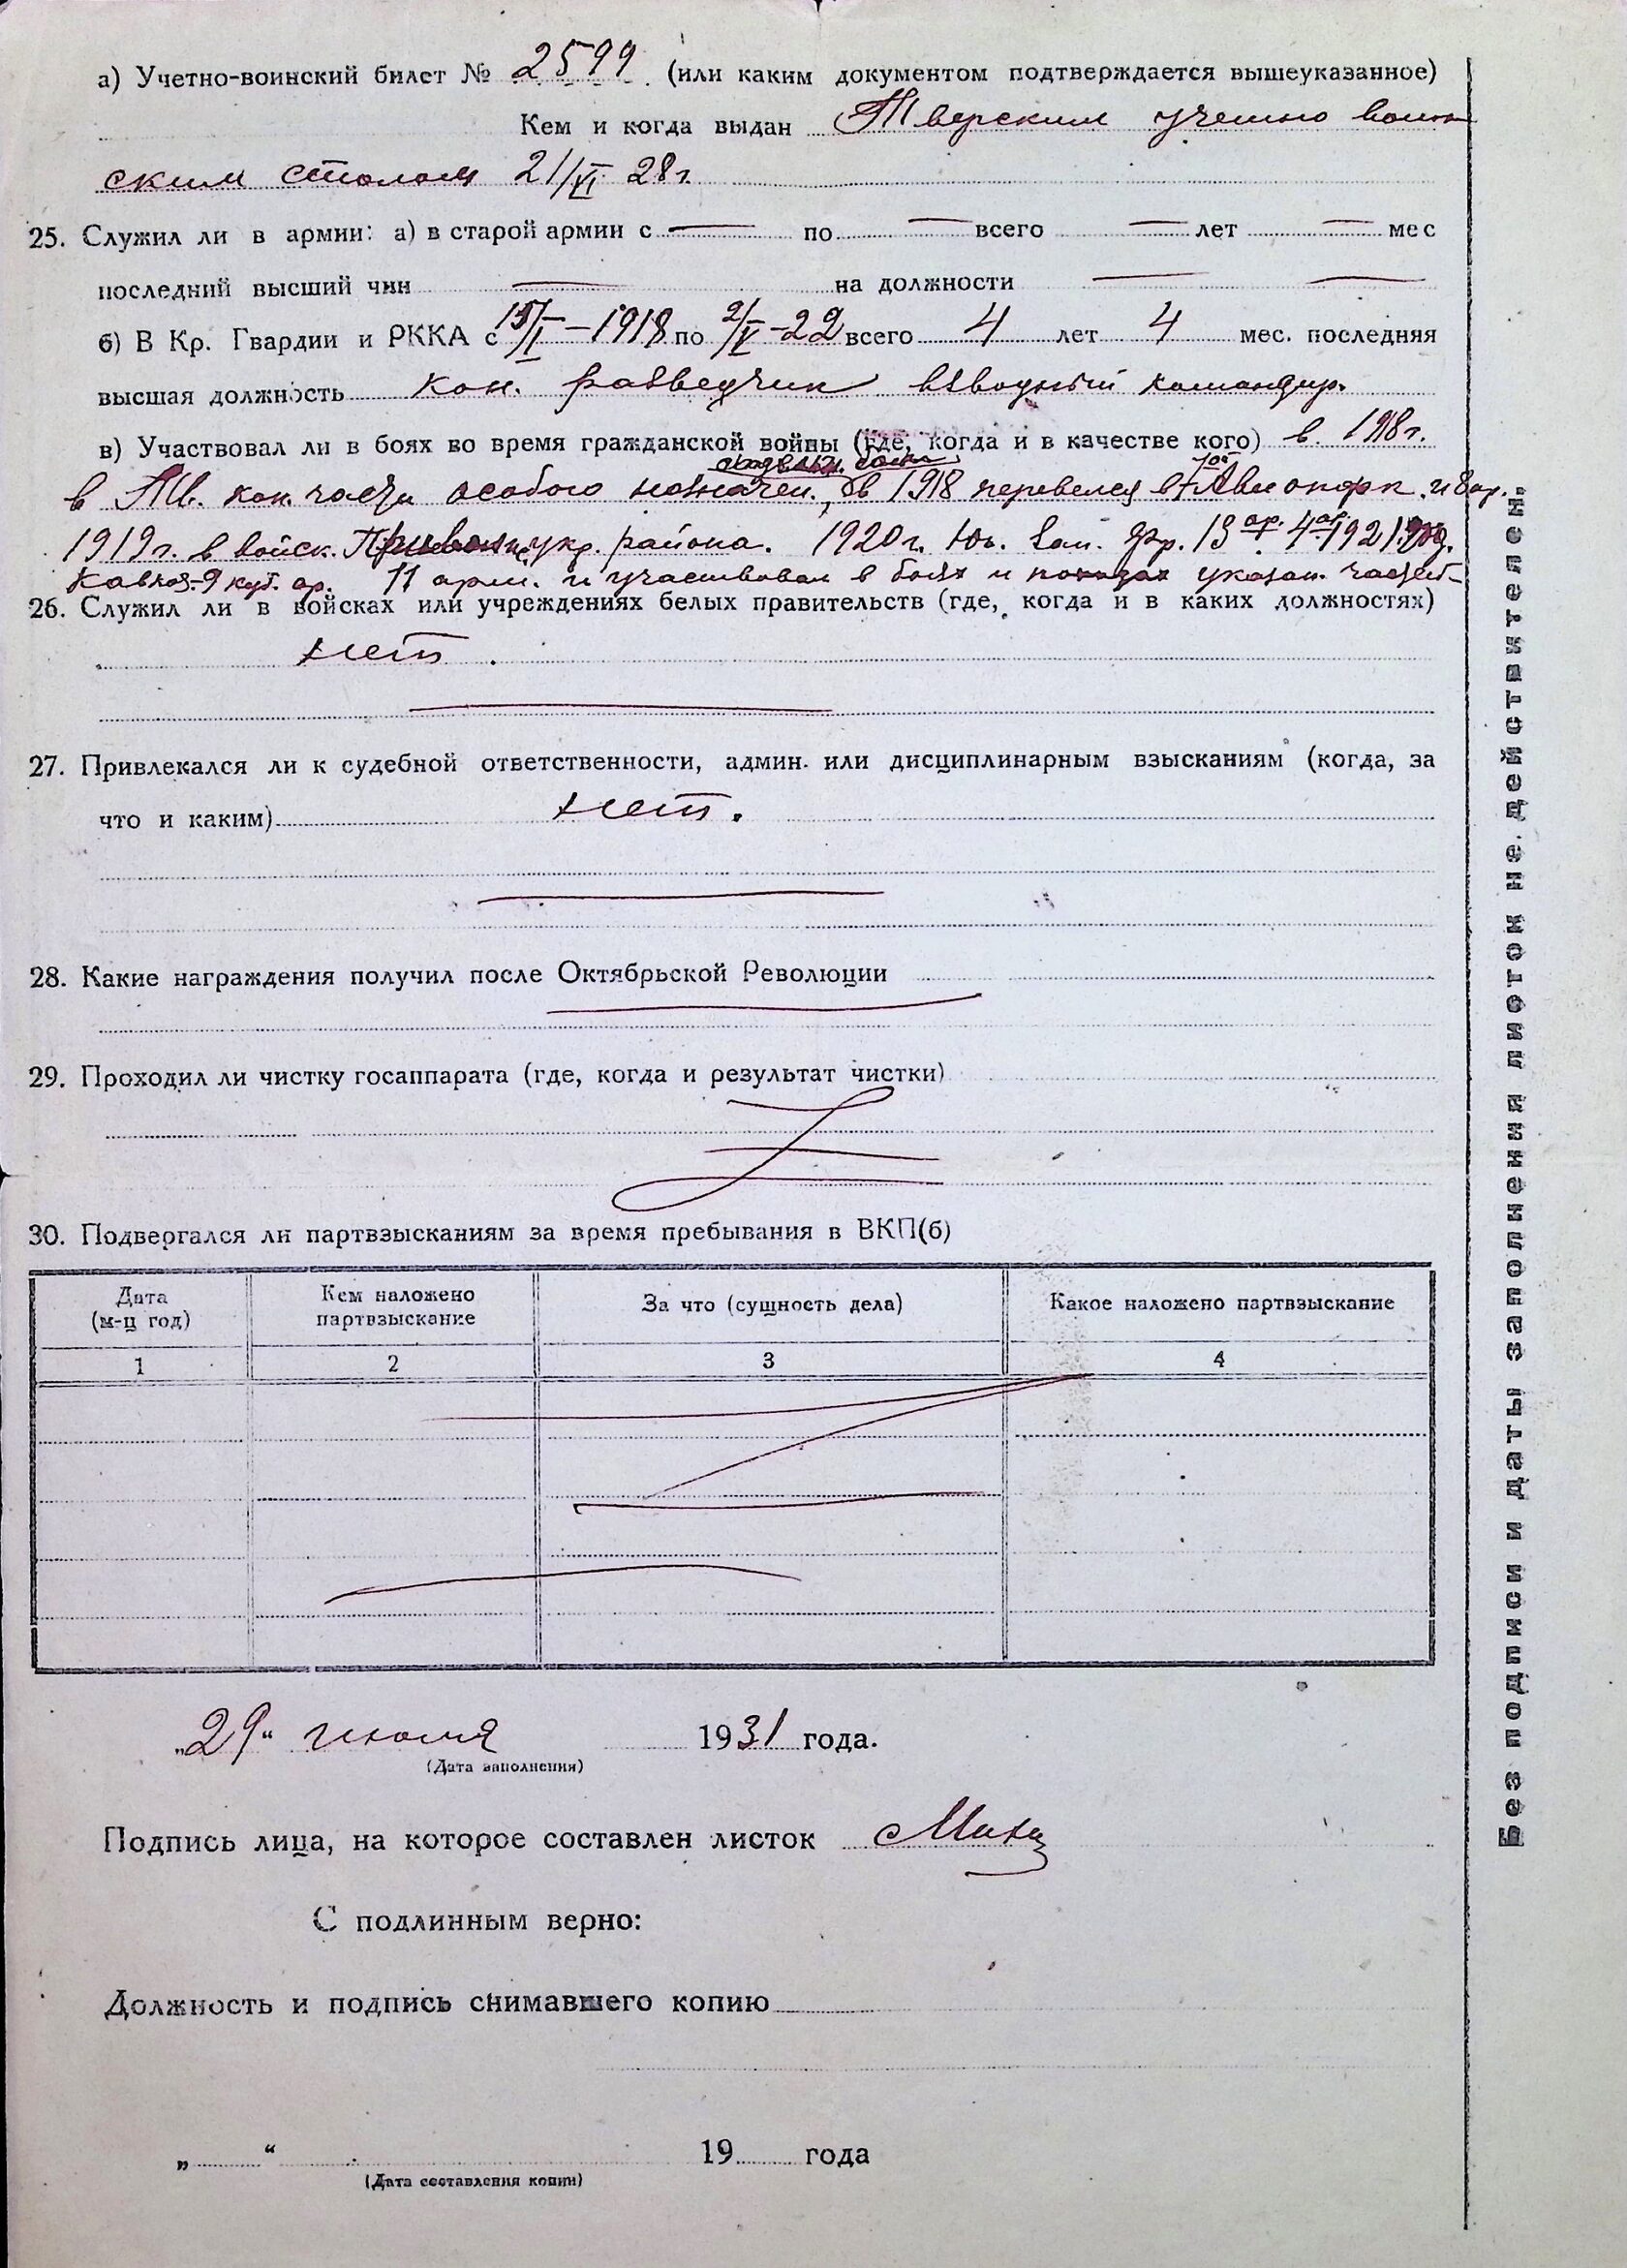 а) Учетно-воинский билет № 2599 (или каким документом подтверждается вышеуказанное)
Кем и когда выдан Тверским учетно воин
ским столом 21/VI 28г.
25. Служил ли в армии: а) в старой армии с — по — всего — лет — мес
последний высший чин — на должности — —
б) В Кр. Гвардии и РККА с 15/I – 1918 по 2/V – 22 всего 4 лет 4 мес. последняя
высшая должность кон. разведчик взводный командир.
в) Участвовал ли в боях во время гражданской войны (где, когда и в качестве кого) в 1918г.
в Тв. кон. части особого назначен., в 1918 перевелся в Авиопарк
1919г. в войск. укр. района. 1920г. Юг. Зап. фр. 13 ар. 4 ар. 1921
Кавказ. 9 куб. ар. 11 арм. и участвовал в боях и походах указан. частей
26. Служил ли в войсках или учреждениях белых правительств (где, когда и в каких должностях)
нет.
27. Привлекался ли к судебной ответственности, админ. или дисциплинарным взысканиям (когда, за
что и каким) нет.
28. Какие награждения получил после Октябрьской Революции
29. Проходил ли чистку госаппарата (где, когда и результат чистки)
30. Подвергался ли партвзысканиям за время пребывания в ВКП(б)
Дата (м-ц год) Кем наложено партвзыскание За что (сущность дела) Какое наложено партвзыскание
1 2 3 4
„29“ июля 1931 года.
(Дата заполнения)
Подпись лица, на которое составлен листок
С подлинным верно:
Должность и подпись снимавшего копию
„ “ 19 года
(Дата составления копии)
Без подписи и даты заполнения листок не действителен.